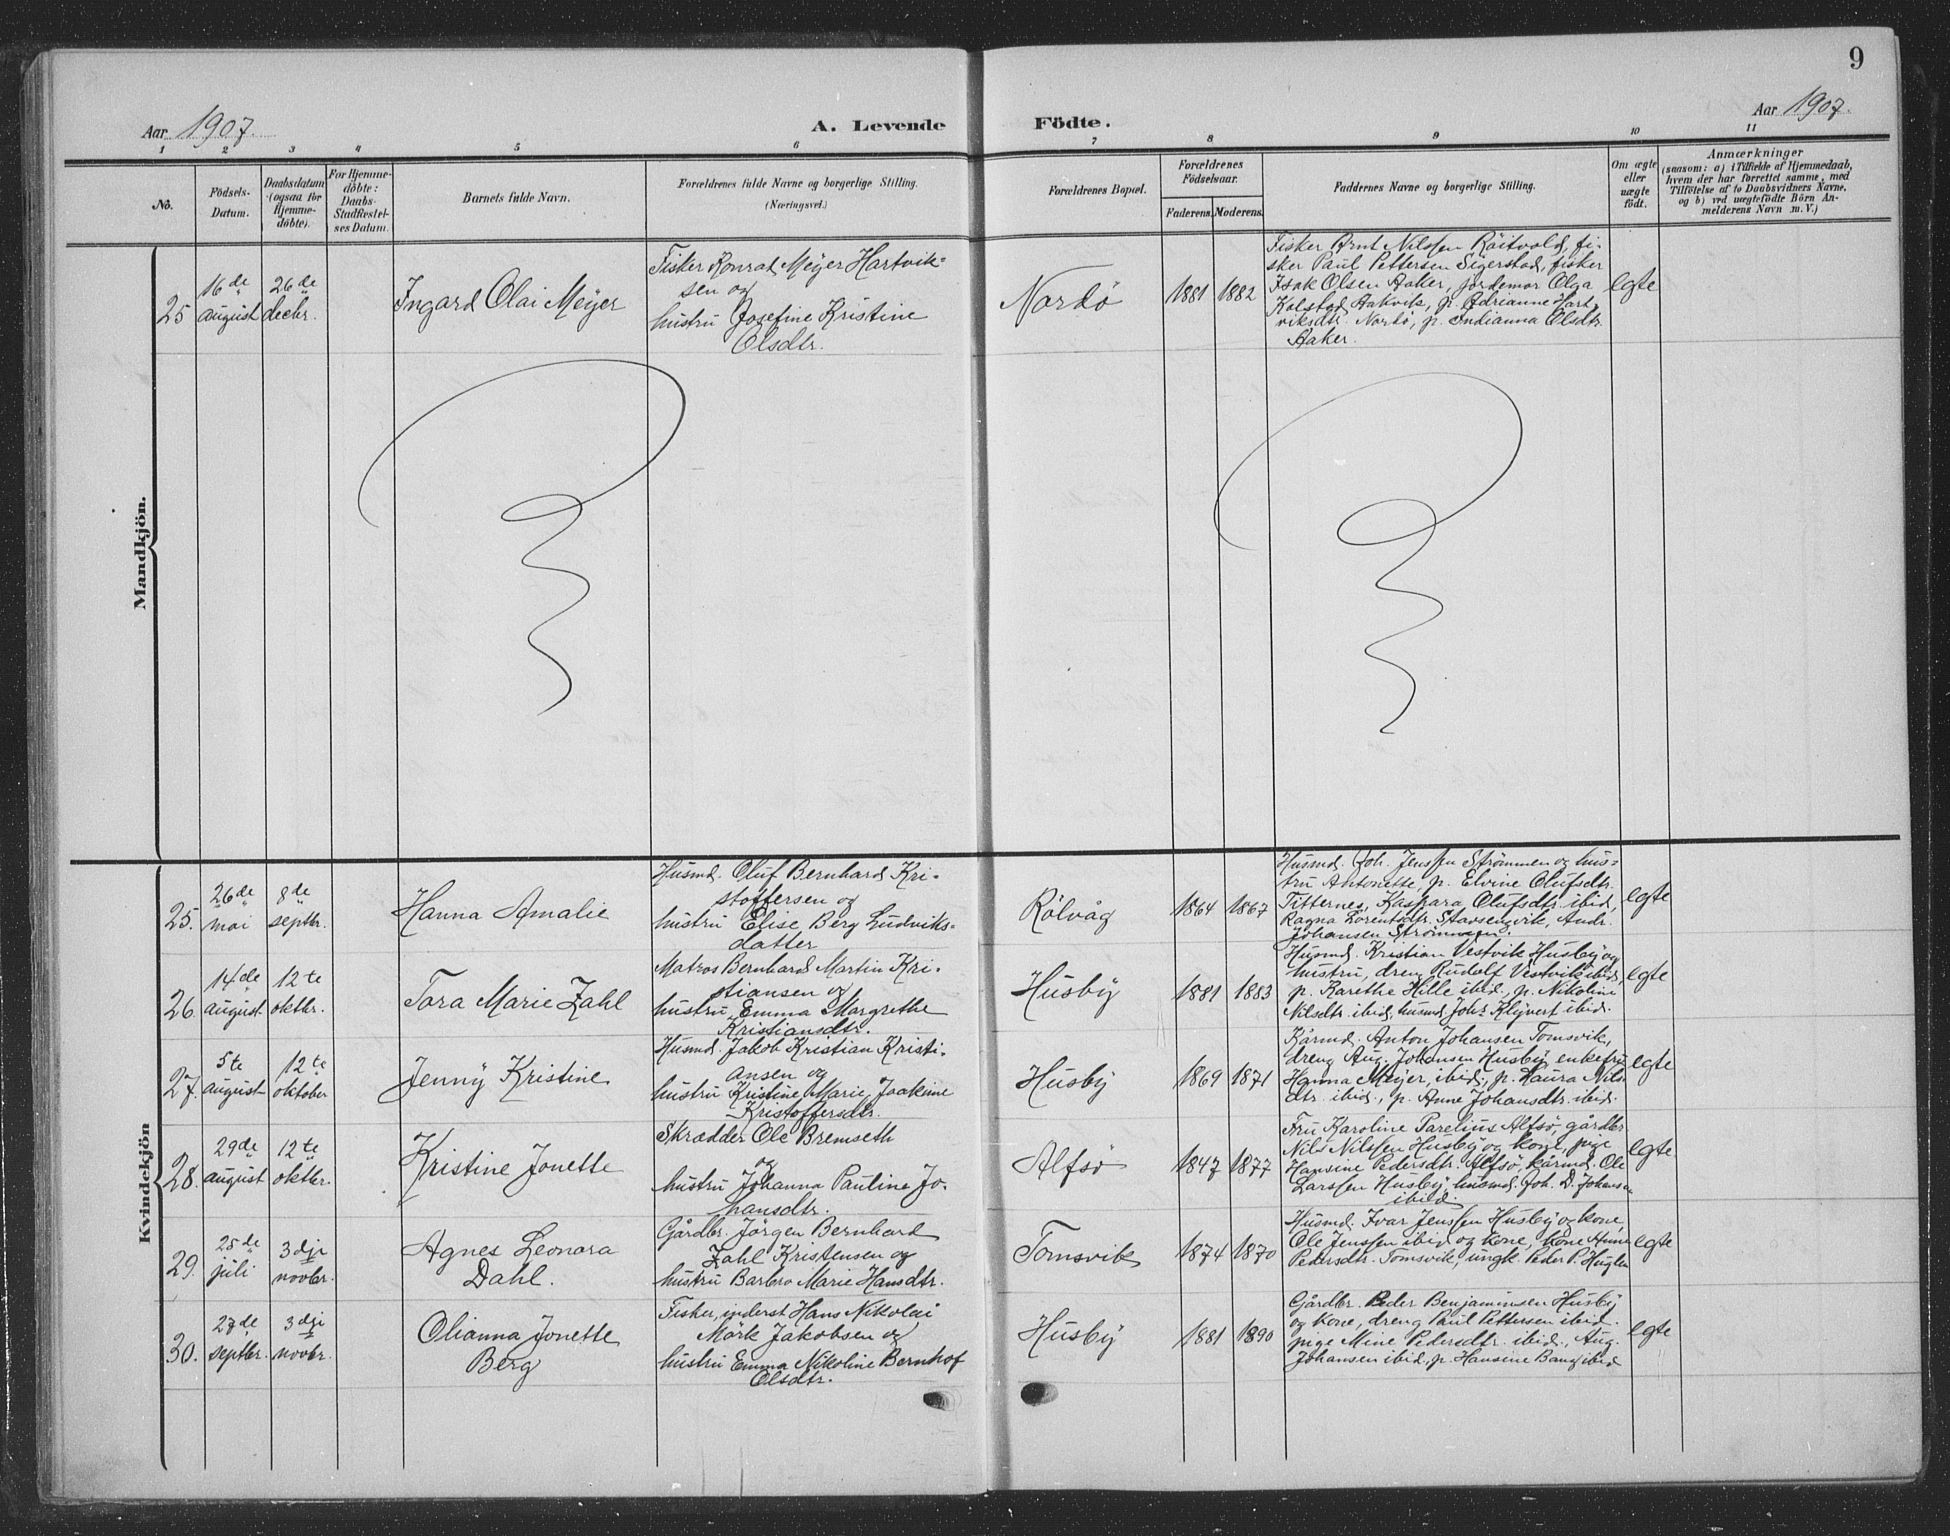 9
Aar 1907. A. Levende Födte. Aar 1907.
1 2 3 4 5 6 7 8 9 10 11
No.
Födsels-
Datum.
Daabsdatum
(ogsaa for
Hjemme-
döbte).
For Hjemme-
döbte:
Daabs-
Stadfæstel-
ses Datum.
Barnets fulde Navn.
Forældrenes fulde Navne og borgerlige Stilling.
(Næringsvei.)
Forældrenes Bopæl.
Forældrenes
Födselsaar.
Faderens. Moderens.
Faddernes Navne og borgerlige Stilling.
Om ægte
eller
uægte
födt.
Anmærkninger
(saasom: a) i Tilfælde af Hjemmedaab,
hvem der har forrettet samme, med
Tilföielse af to Daabsvidners Navne,
og b) ved uægtefödte Börn An-
melderens Navn m.V.)
Mandkjön.
25
16de
august
26de
decbr.
Ingard Olai Meyer
Fisker Konrad Meyer Hartvik-
sen og
hustru Josefine Kristine
Olsdtr.
Nordö
1881
1882
Fisker Arnt Nilssen Röitvold, fi-
sker Paul Pettersen Sigerstad, fisker
Isak Olsen Aaker, jordemor Olga
Kolstad Aakvik, p. Adrianne Hart-
viksdtr. Nordö, p. Indianna Olsdtr.
Aaker.
egte
Kvindekjön
25.
26de
mai
8de
septbr.
Hanna Amalie
Husmd. Oluf Bernhard Kri-
stoffersen og
hustru Elise Berg Ludviks-
datter
Rölvåg
1864
1867
Husmd. Joh. Jenssen Strömmen og hus-
tru Antonette, p. Elvine Olufsdtr.
Titternes, Kaspara Olufsdtr. ibid,
Ragna Lorentsdtr. Stavsengvik, Andr.
Johansen Strömmen.
egte
26.
14de
august
12te
oktbr.
Tora Marie Zahl
Matros Bernhard Martin Kri-
stiansen og
hustru Emma Margrethe
Kristiansdtr.
Husby
1881
1883
Husmd. Kristian Vestvik Husby og
hustru, dreng Rudolf Vestvik ibid,
p. Karethe Hille ibid., p. Nikoline
Nilsdtr. ibid, husmd. Johs Klejvert ibid.
egte
27.
5te
august
12te
oktober
Jenny Kristine
Husmd. Jakob Kristian Kristi-
ansen og
hustru Kristine Marie Joakime
Kristoffersdtr.
Husby
1869
1871
Kårmd. Anton Johansen Tomsvik,
dreng Aug. Johansen Husby, enkefru
Hanna Meyer, ibid., p. Laura Nils-
dtr. ibid., p. Anne Johansdtr. ibid.
egte
28.
29de
august
12te
oktbr.
Kristine Jonette
Skrædder Ole Bremseth
og
hustru Johanna Pauline Jo-
hansdtr.
Alfsö
1847
1877
Fru Karoline Parelius Alfsö, gårdbr.
Nils Nilssen Husby og kone, pige
Hansine Pedersdtr. Alfsö, kårmd. Ole
Larssen Husby, husmd. Joh. D. Johansen
ibid.
egte
29.
25de
juli
3dji
novbr.
Agnes Leonora
Dahl.
Gårdbr. Jörgen Bernhard
Zahl Kristensen og
hustru Barbro Marie Hansdtr.
Tomsvik
1874
1870
Husmd. Ivar Jenssen Husby og kone,
Ole Jenssen ibid og kone, kone Anne
Pedersdtr. Tomsvik, ungk. Peder P. Huglen
egte
30.
27de
septbr.
3dji
novbr.
Olianna Jonette
Berg
Fisker, inderst Hans Nikolai
Mörk Jakobsen og
hustru Emma Nikoline Bernhof
Olsdtr.
Husby
1881
1890
Gårdbr. Peder Benjaminsen Husby
og kone, dreng Paul Pettersen ibid.
pige Mine Pedersdtr. ibid., Aug.
Johansen ibid, p. Hansine Bang ibid
egte